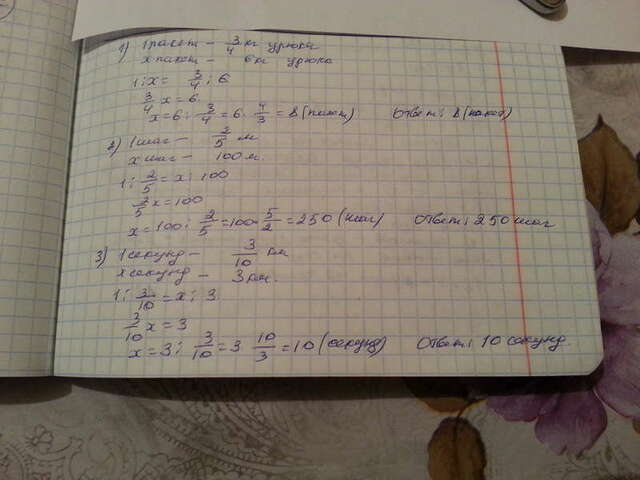 1) 1 пакет – 3/4 кг урюка
x пакет – 6 кг урюка
1 : x = 3/4 : 6
3/4 x = 6
x = 6 : 3/4 = 6 · 4/3 = 8 (пакет) Ответ : 8 (пакет)
2) 1 шаг – 2/5 м
x шаг – 100 м.
1 : 2/5 = x : 100
2/5 x = 100
x = 100 : 2/5 = 100 · 5/2 = 250 (шаг) Ответ : 250 шаг
3) 1 секунд – 3/10 км
x секунд – 3 км.
1 : 3/10 = x : 3
3/10 x = 3
x = 3 : 3/10 = 3 10/3 = 10 (секунд) Ответ : 10 секунд.